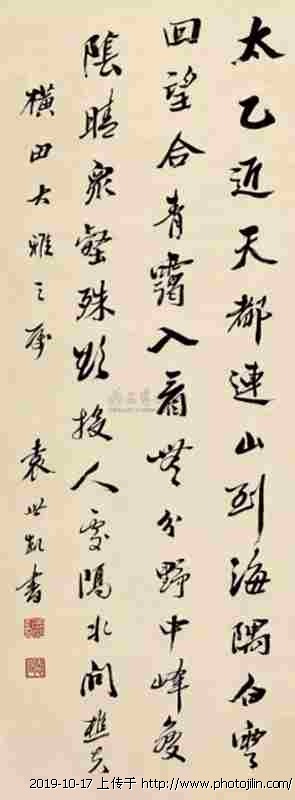 太乙近天都連山到海隅白雲
回望合青靄入看無分野中峰變
陰晴衆壑殊欲投人處隔水問樵夫
橫田大雅之屬 袁世凱書
2019-10-17 上传于 http://www.photojilin.com/